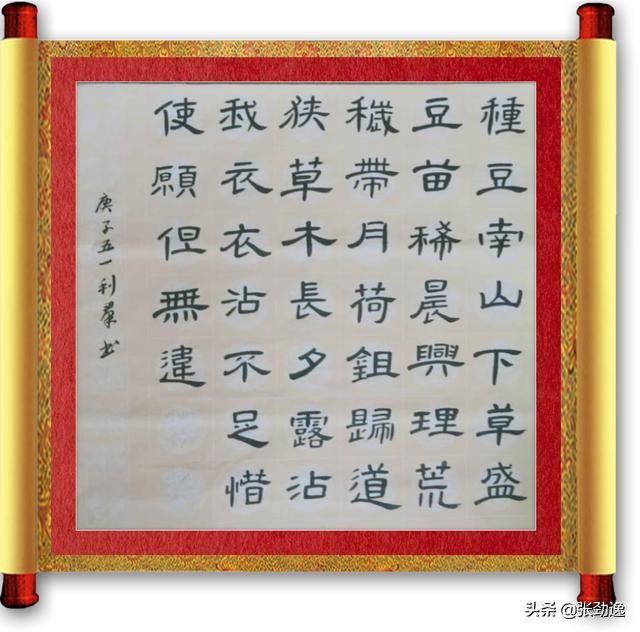 種豆南山下草盛
豆苗稀晨興理荒
穢帶月荷鉏歸道
狹草木長夕露沾
我衣衣沾不足惜
使願但無違
庚子五一利羣书
头条 @张劲逸